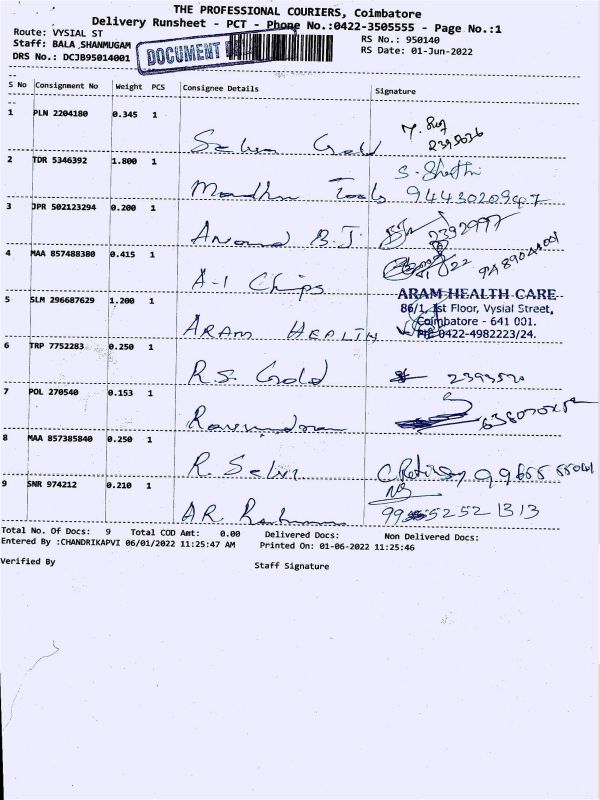 THE PROFESSIONAL COURIERS, Coimbatore
Delivery Runsheet - PCT - Phone No.:0422-3505555 - Page No.:1
Route: VYSIAL ST
Staff: BALA ,SHANMUGAM
DRS No.: DCJB95014001
DOCUMENT
RS No.: 950140
RS Date: 01-Jun-2022
S No Consignment No Weight PCS Consignee Details Signature
1 PLN 2204180 0.345 1 Selva Gold
2 TDR 5346392 1.800 1 Madhu Tools
3 JPR 502123294 0.200 1 Anand B.J. 2392997
4 MAA 857488380 0.415 1 A-1 Chips
5 SLM 296687629 1.200 1 ARAM HEALTH
ARAM HEALTH CARE
86/1, 1st Floor, Vysial Street,
Coimbatore - 641 001.
PH: 0422-4982223/24.
6 TRP 7752283 0.250 1 R.S. Gold
7 POL 270540 0.153 1
8 MAA 857385840 0.250 1 R. Selvi
9 SNR 974212 0.210 1 A.R.
Total No. Of Docs: 9 Total COD Amt: 0.00 Delivered Docs: Non Delivered Docs:
Entered By :CHANDRIKAPVI 06/01/2022 11:25:47 AM Printed On: 01-06-2022 11:25:46
Verified By Staff Signature